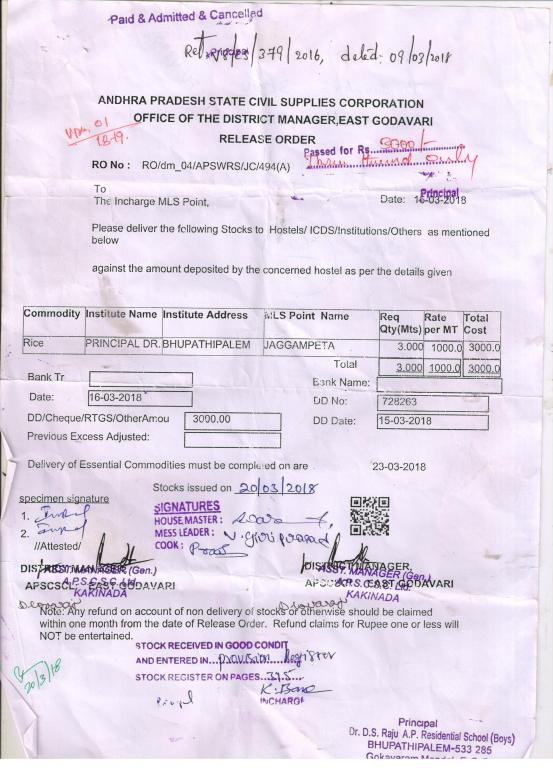 Paid & Admitted & Cancelled
/379/2016, dated: 09/03/2018
ANDHRA PRADESH STATE CIVIL SUPPLIES CORPORATION
OFFICE OF THE DISTRICT MANAGER,EAST GODAVARI
RELEASE ORDER
18-19.
Passed for Rs.
only
RO No : RO/dm_04/APSWRS/JC/494(A)
Principal
To
Date: 16-03-2018
The Incharge MLS Point,
Please deliver the following Stocks to Hostels/ ICDS/Institutions/Others as mentioned
below
against the amount deposited by the concerned hostel as per the details given
Commodity Institute Name Institute Address MLS Point Name Req Qty(Mts) Rate per MT Total Cost
Rice PRINCIPAL DR. BHUPATHIPALEM JAGGAMPETA 3.000 1000.0 3000.0
Total 3.000 1000.0 3000.0
Bank Tr
Bank Name:
Date: 16-03-2018
DD No: 728263
DD/Cheque/RTGS/OtherAmou 3000.00
DD Date: 15-03-2018
Previous Excess Adjusted:
Delivery of Essential Commodities must be completed on are 23-03-2018
Stocks issued on 20/03/2018
specimen signature
SIGNATURES
1.
HOUSE MASTER :
2.
MESS LEADER : V. giri prasad
//Attested/
COOK :
DISTRICT MANAGER,
ASST. MANAGER (Gen.)
APSCSCL., EAST GODAVARI
A.P.S.C.S.C. Ltd.
KAKINADA
Note: Any refund on account of non delivery of stocks or otherwise should be claimed
within one month from the date of Release Order. Refund claims for Rupee one or less will
NOT be entertained.
STOCK RECEIVED IN GOOD CONDIT
AND ENTERED IN provision Register
STOCK REGISTER ON PAGES
20/3/18
INCHARGE
Principal
Dr. D.S. Raju A.P. Residential School (Boys)
BHUPATHIPALEM-533 285